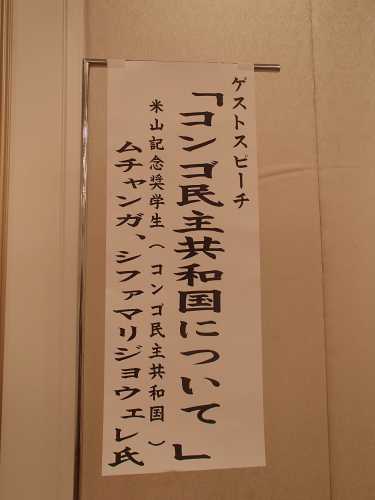 ゲストスピーチ
「コンゴ民主共和国について」
米山記念奨学生(コンゴ民主共和国)
ムチャンガ、シファマリジョウェレ氏